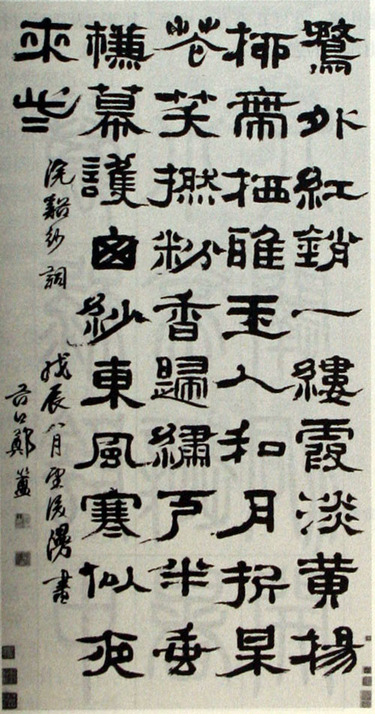 鶩外紅銷一縷霞淡黃楊
柳帶栖雅玉人和月折呆
花笑撚粉香歸繡戶半垂
幕護囪紗東風寒似夜
來些
浣谿紗詞 戊辰八月後漫書
谷口鄭簠